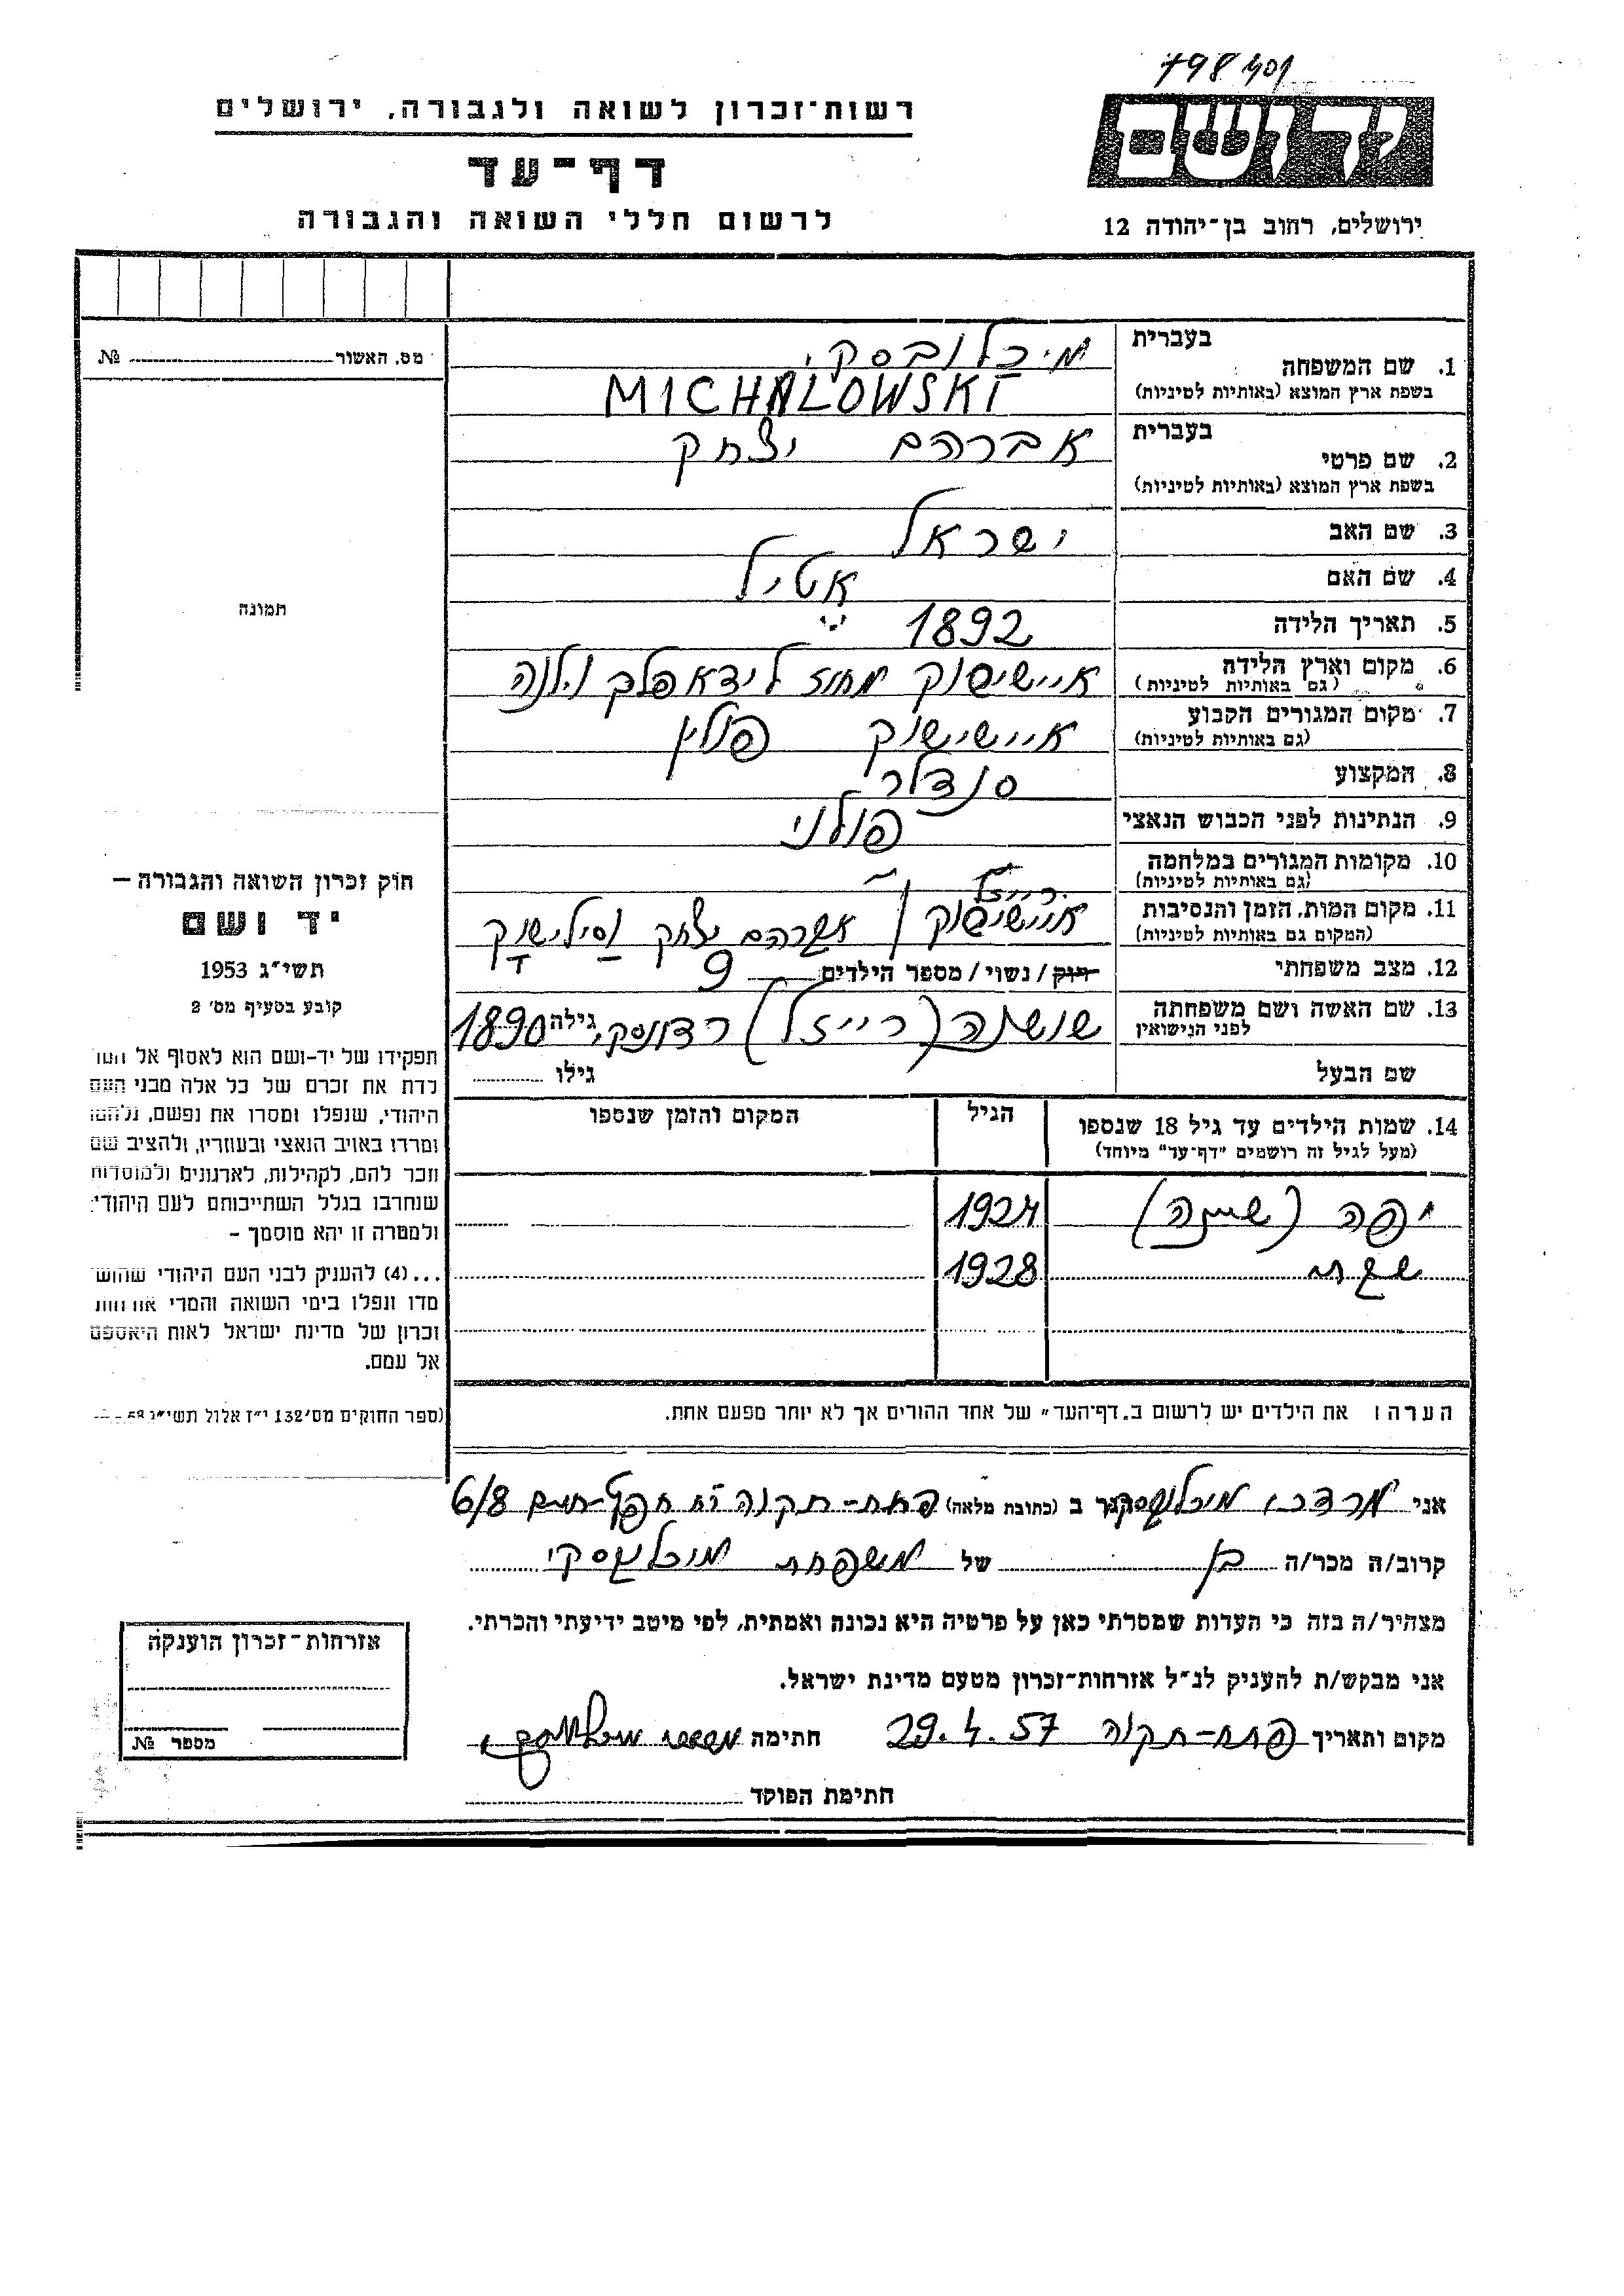 798401
יד ושם
רשות־זכרון לשואה ולגבורה, ירושלים
דף־עד
לרשום חללי השואה והגבורה
ירושלים, רחוב בן־יהודה 12
מס. האשור № 
תמונה
1. שם המשפחה
בעברית מיכלובסקי
בשפת ארץ המוצא (באותיות לטיניות) MICHALOWSKI
2. שם פרטי
בעברית אברהם יצחק
בשפת ארץ המוצא (באותיות לטיניות)
3. שם האב ישראל
4. שם האם אטיל
5. תאריך הלידה 1892
6. מקום וארץ הלידה איישישוק מחוז לידא פלך וילנה
(גם באותיות לטיניות)
7. מקום המגורים הקבוע איישישוק פולין
(גם באותיות לטיניות)
8. המקצוע סנדלר
9. הנתינות לפני הכבוש הנאצי פולני
10. מקומות המגורים במלחמה
(גם באותיות לטיניות)
רייזל
11. מקום המות, הזמן והנסיבות איישישוק / אברהם יצחק וסילישוק
(המקום גם באותיות לטיניות)
12. מצב משפחתי רווק / נשוי / מספר הילדים 9
13. שם האשה ושם משפחתה שושנה (רייזל) רדונסקי גילה 1890
לפני הנישואין
שם הבעל גילו
14. שמות הילדים עד גיל 18 שנספו הגיל המקום והזמן שנספו
(מעל לגיל זה רושמים "דף־עד" מיוחד)
יפה (שיינה) 1924
1928
הערה: את הילדים יש לרשום ב„דף־העד" של אחד ההורים אך לא יותר מפעם אחת.
אני מרדכי מיכלובסקי הגר ב (כתובת מלאה) פתח־תקוה רח חפץ־חיים 6/8
קרוב/ה מכר/ה בן של משפחת מיכלובסקי
מצהיר/ה בזה כי העדות שמסרתי כאן על פרטיה היא נכונה ואמתית, לפי מיטב ידיעתי והכרתי.
אני מבקש/ת להעניק לנ"ל אזרחות־זכרון מטעם מדינת ישראל.
מקום ותאריך פתח־תקוה 29.4.57 חתימה
חתימת הפוקד
חוק זכרון השואה והגבורה —
יד ושם
תשי"ג 1953
קובע בסעיף מס' 2
תפקידו של יד־ושם הוא לאסוף אל המו
לדת את זכרם של כל אלה מבני העם
היהודי, שנפלו ומסרו את נפשם, נלחמו
ומרדו באויב הנאצי ובעוזריו, ולהציב שם
וזכר להם, לקהילות, לארגונים ולמוסדות
שנחרבו בגלל השתייכותם לעם היהודי;
ולמטרה זו יהא מוסמך —
...(4) להעניק לבני העם היהודי שהוש
מדו ונפלו בימי השואה והמרי אזרחות
זכרון של מדינת ישראל לאות היאספם
אל עמם.
(ספר החוקים מס' 132 י"ז אלול תשי"ג
אזרחות־זכרון הוענקה
מספר №